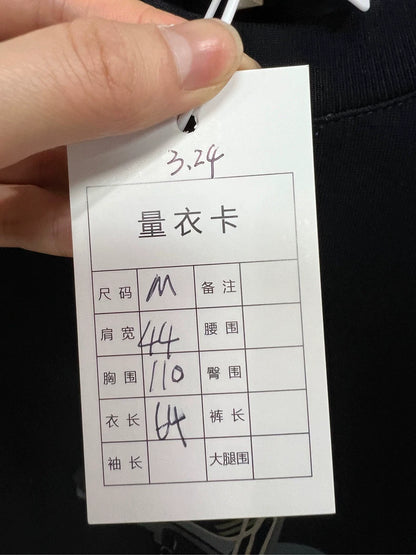 3.24
量衣卡
尺码 M 备注
肩宽 44 腰围
胸围 110 臀围
衣长 64 裤长
袖长 大腿围